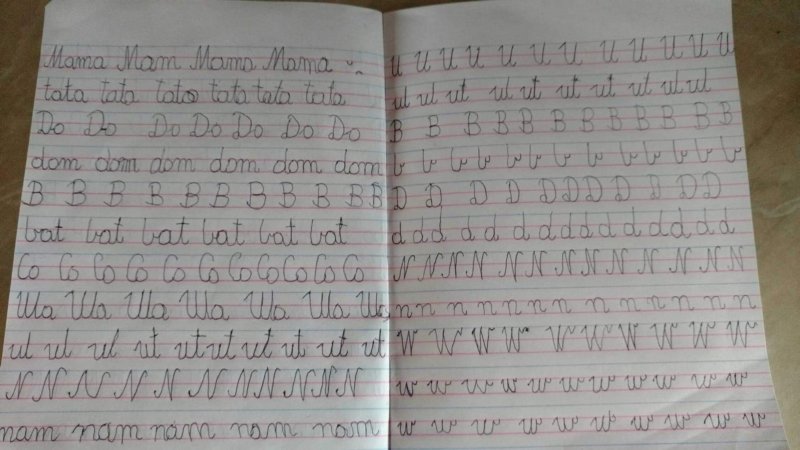 Mama Mam Mama Mama
tata tata tata tata tata tata
Do Do Do Do Do Do Do
dom dom dom dom dom dom
B B B B B B B B B B B
bat bat bat bat bat bat
Co Co Co Co Co Co Co Co Co Co Co
Ula Ula Ula Ula Ula Ula Ula
ul ul ul ut ut ut ut ut ut ut
N N N N N N N N N N N
nam nam nam nam nam
U U U U U U U U U U U U
ul ul ut ul ut ut ut ut ul ul
B B B B B B B B B B B B
b b b b b b b b b b b b b
D D D D D D D D D D D
d d d d d d d d d d d d d d d
N N N N N N N N N N N N N
n n n n n n n n n n n n n
W W W W W W W W W W
w w w w w w w w w w w
w w w w w w w w w w